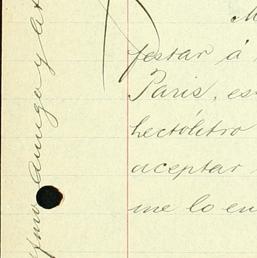 M
festar á
Paris, es
hectólitro
aceptar
me lo en
afmo amigo y at